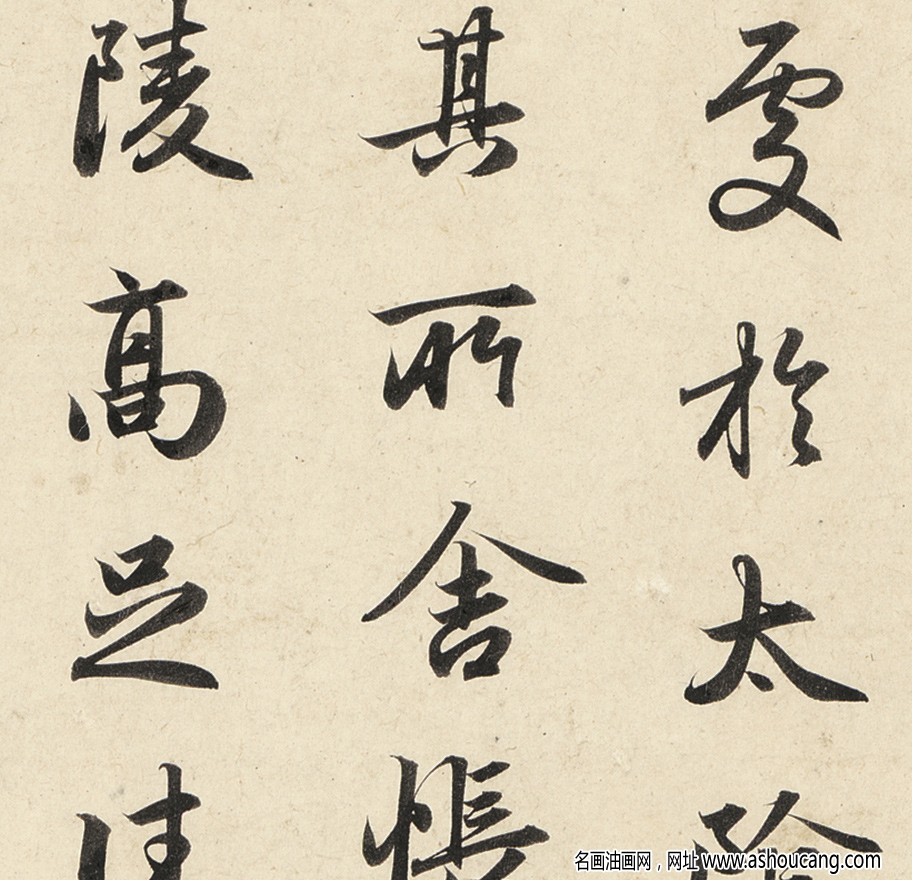 處於太陰
其所舍悵
陵高足往
名画油画网，网址 www.ashoucang.com